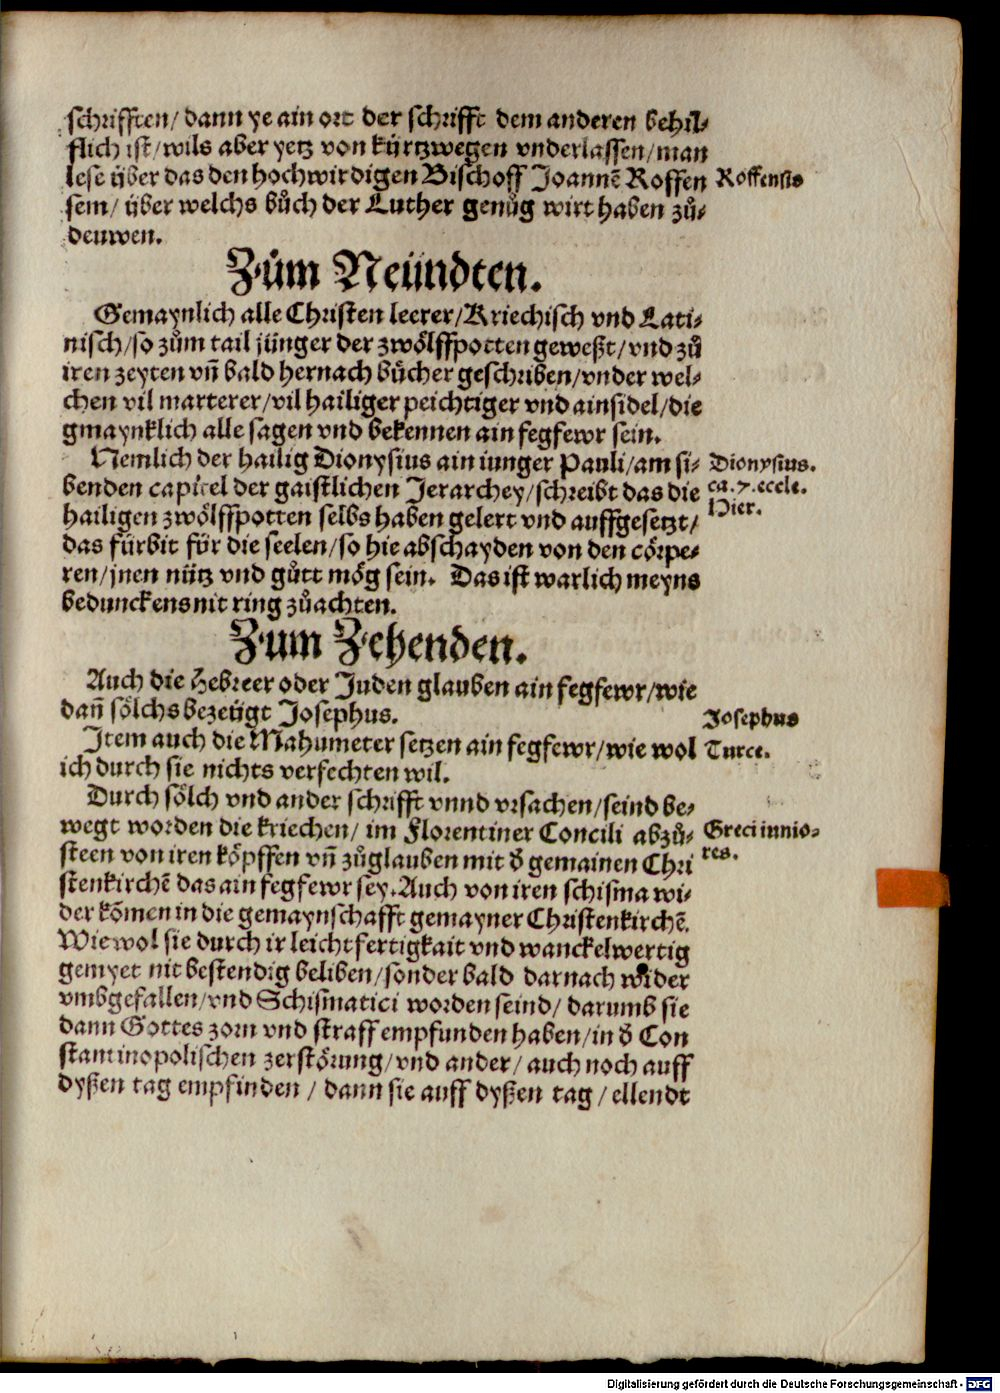 schrifften/ dann ye ain ort der schrifft dem anderen behil⸗
flich ist/wils aber yetz von kürtzwegen vnderlassen/man
lese über das den hochwirdigen Bischoff Joannē Roffen
Roffensis
sem/ über welchs bůch der Luther genůg wirt haben zů⸗
deuwen.
Zům Neündten.
Gemaynlich alle Christen leerer/Kriechisch vnd Lati⸗
nisch/so zům tail jünger der zwölffpotten geweßt/vnd zů
iren zeyten vñ bald hernach bücher geschriben/vnder wel⸗
chen vil marterer/vil hailiger peichtiger vnd ainsidel/die
gmaynklich alle sagen vnd bekennen ain fegfewr sein.
Nemlich der hailig Dionysius ain iunger Pauli/am si⸗
Dionysius.
benden capitel der gaistlichen Jerarchey/schreibt das die
ca.7.eccle.
hailigen zwölffpotten selbs haben gelert vnd auffgesetzt/
Hier.
das fürbit für die seelen/so hie abschayden von den cörpe⸗
ren/jnen nütz vnd gůtt mög sein. Das ist warlich meyns
bedunckens nit ring zůachten.
Zum Zehenden.
Auch die Hebreer oder Juden glauben ain fegfewr/wie
dañ sölchs bezeügt Josephus.
Josephus
Item auch die Mahumeter setzen ain fegfewr/wie wol
Turce.
ich durch sie nichts verfechten wil.
Durch sölch vnd ander schrifft vnnd vrsachen/seind be⸗
wegt worden die kriechen/ im Florentiner Concili abzů⸗
Greci iunio⸗
steen von iren köpffen vñ zůglauben mit d' gemainen Chri
res.
stenkirchē das ain fegfewr sey. Auch von iren schisma wi⸗
der kõmen in die gemaynschafft gemayner Christenkirchē.
Wie wol sie durch ir leichtfertigkait vnd wanckelwertig
gemyet nit bestendig beliben/sonder bald darnach wider
vmbgefallen/vnd Schismatici worden seind/ darumb sie
dann Gottes zorn vnd straff empfunden haben/in d' Con
stantinopolischen zerstörung/vnd ander/ auch noch auff
dyßen tag empfinden / dann sie auff dyßen tag / ellendt
Digitalisierung gefördert durch die Deutsche Forschungsgemeinschaft - DFG